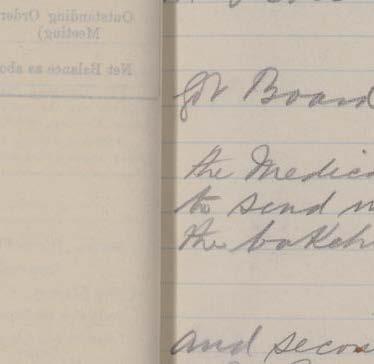 Outstanding Order
Meeting)
Net Balance as abo
for Board
the Medica
to send
the
and secon